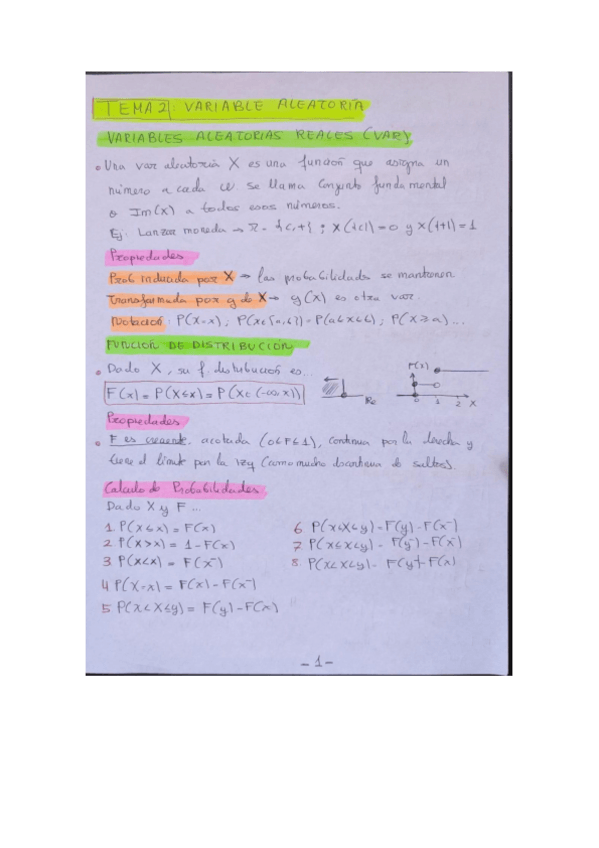 TEMA 2: VARIABLE ALEATORIA
VARIABLES ALEATORIAS REALES (VAR)
• Una var aleatoria X es una función que asigna un
número a cada ω se llama conjunto fundamental
Im(X) a todos esos números.
Ej: Lanzar moneda → {c,+} ; X({c}) = 0 y X({+}) = 1
Propiedades
Prob inducida por X → las probabilidades se mantienen
Transformada por g de X → g(X) es otra var.
Notación: P(X=x) ; P(X∈[a,b]) = P(a≤X≤b) ; P(X≥a)...
FUNCIÓN DE DISTRIBUCIÓN
• Dado X, su f. distribución es...
F(x) = P(X≤x) = P(X∈(-∞,x])
F(x)
0 1 2 X
Propiedades
• F es creciente, acotada (0≤F≤1), continua por la derecha y
tiene el límite por la izq (como mucho discontinua de saltos).
Calculo de Probabilidades
Dado X y F ...
1. P(X≤x) = F(x)
2 P(X>x) = 1-F(x)
3. P(X<x) = F(x⁻)
4 P(X=x) = F(x) - F(x⁻)
5 P(x<X≤y) = F(y) - F(x)
6 P(x≤X≤y) = F(y) - F(x⁻)
7 P(x≤X<y) = F(y⁻) - F(x⁻)
8. P(x<X<y) = F(y⁻) - F(x)
- 1 -